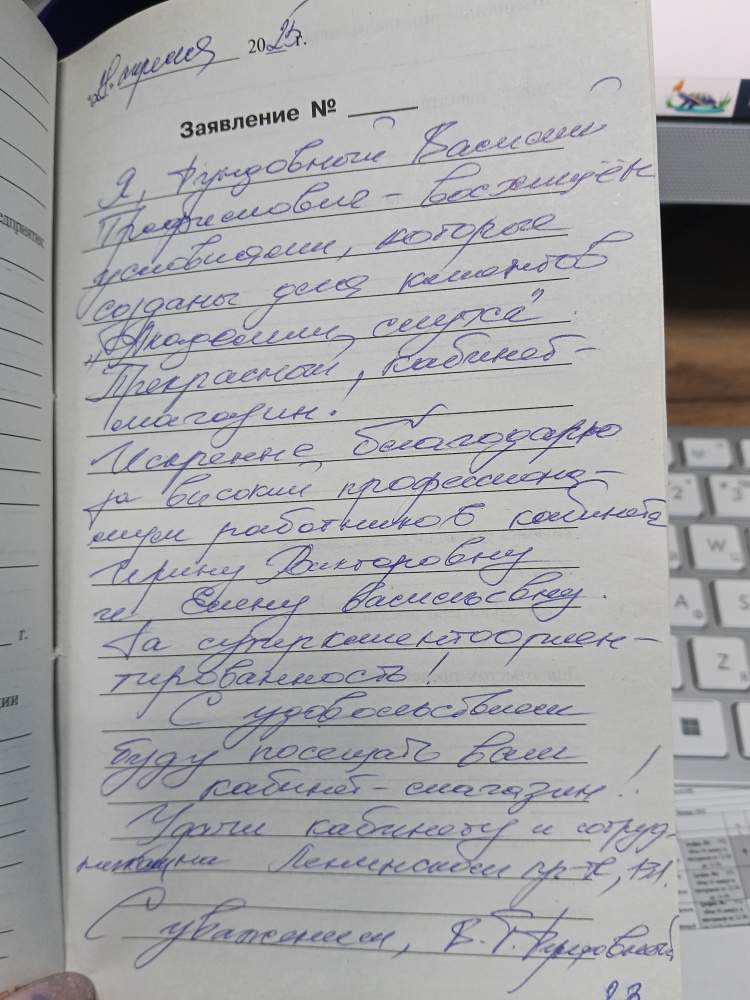 28 апреля 2025 г.
Заявление №
Я, Рундовный Василий
Трофимович – восхищён
условиями, которые
созданы для клиентов
"Академии слуха".
Прекрасный, кабинет-
магазин!
Искренне благодарю
за високий профессиона-
лизм работников кабинета
Ирину Викторовну
и Елену Васильевну.
За суперклиентоориен-
тированность!
С удовольствием
буду посещать ваш
кабинет-магазин!
Удачи кабинету и сотруд-
никам на Ленинском пр-те,
С уважением, В.Т.
г.
Q
W
A
S
Z